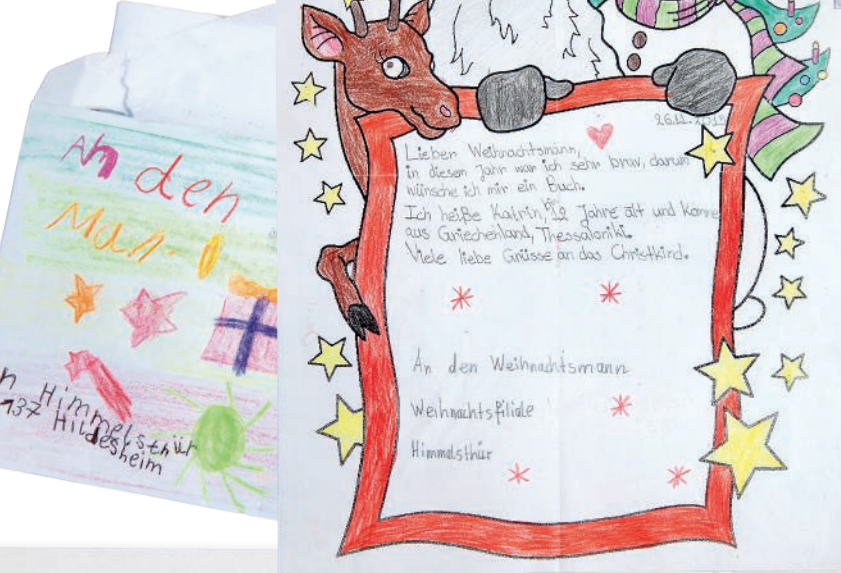 An den
Man
n Himmelsthür
137 Hildesheim
26.11.
Lieber Weihnachtsmann,
in diesem Jahr war ich sehr brav, darum
wünsche ich mir ein Buch.
Ich heiße Katrin, bin 12 Jahre alt und komme
aus Griechenland, Thessaloniki.
Viele liebe Grüsse an das Christkind.
An den Weihnachtsmann
Weihnachtsfiliale
Himmelsthür